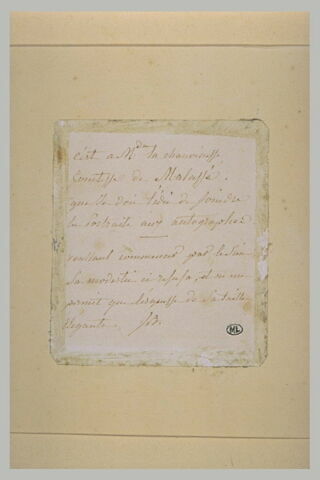 c'est a Mde la chanoinesse
Comtesse de Malassé.
que je dois l'idée de joindre
les Portraits aux autographes
voulant commencer par le sien
Sa modestie s'i refusa, et ne me
permit que l'esquisse de Sa taille
élégante. JB.
ML